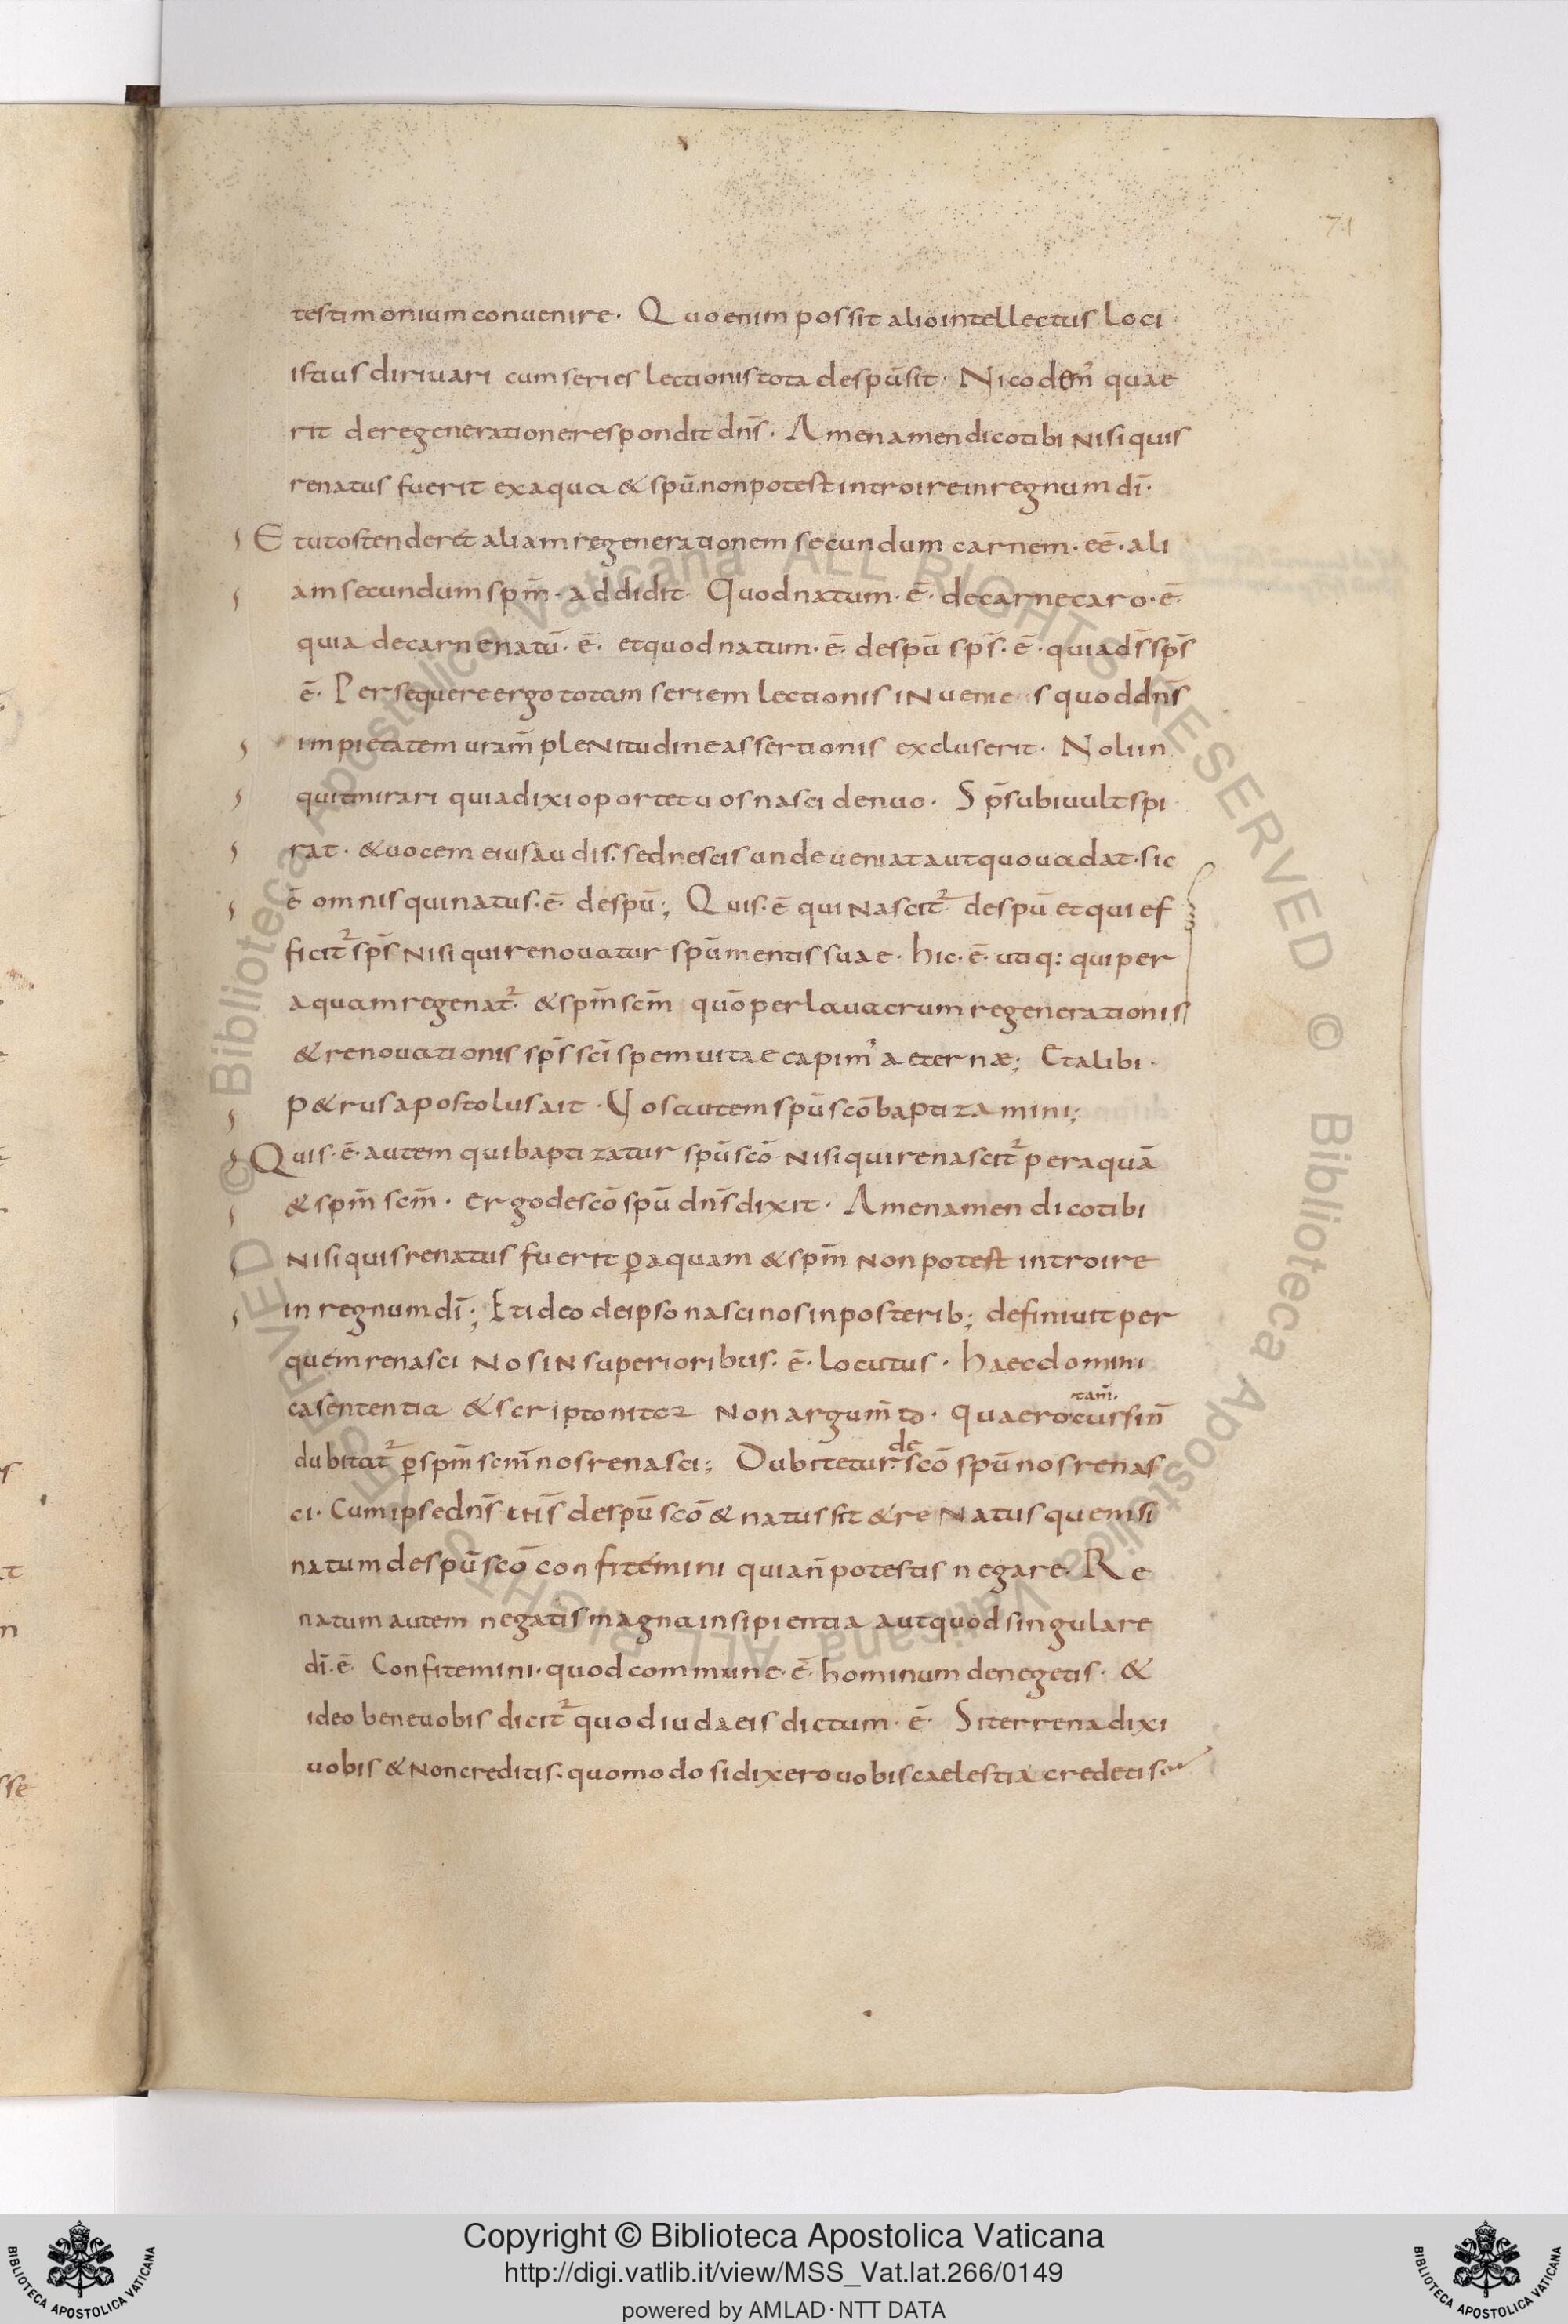 71
testimonium convenire. Quo enim possit alio intellectus loci
istius dirivari cum series lectionis tota de spū sit. Nicodem' quae
rit de regeneratione respondit dns̄. Amen amen dico tibi nisi quis
renatus fuerit ex aqua & spū. non potest introire in regnum dī.
Et ut ostenderet aliam regenerationem secundum carnem. eē. ali
am secundum spm̄. addidit. Quod natum. ē. de carne caro. ē.
quia de carne natū. ē. et quod natum. ē. de spū sps̄. ē. quia ds̄ sps̄
ē. Persequere ergo totam seriem lectionis invenies quod dns̄
impietatem vram̄ plenitudine assertionis excluserit. Noli in
quit mirari quia dixi oportet vos nasci denuo. Sps̄ ubi vult spi
rat. & vocem eius audis. sed nescis unde veniat aut quo vadat. sic
ē omnis qui natus. ē. de spū; Quis. ē qui nascit² de spū et qui ef
ficit² sps̄ nisi qui renovatur spū mentis suae. hic. ē. utiq: qui per
aquam regenat². & spm̄ scm̄ quō per lavacrum regenerationis
& renovationis sps̄ scī spem vitae capim' aeternæ; Et alibi.
P&rus apostolus ait. Vos autem spū scō baptizamini;
Quis. ē. autem qui baptizatur spū scō nisi qui renascit² per aquā
& spm̄ scm̄. ergo de scō spū dns̄ dixit. Amen amen dico tibi
nisi quis renatus fuerit p̲ aquam & spm̄ non potest introire
in regnum dī; Et ideo de ipso nasci nos in posterib; definivit per
quem renasci nos in superioribus. ē. locutus. haec domini
ca sententia & scripto nitet² non argum̄to. Quaero tam̄. cur sin̄
dubitat² p̲ spm̄ scm̄ nos renasci; Dubitetur de scō spū nos renas
ci. Cum ipse dns̄ ihs̄ de spū scō & natus sit & renatus quem si
natum de spū scō confitemini quia n̄ potestis negare. Re
natum autem negatis magna insipientia aut quod singulare
dī. ē. Confitemini. quod commune. ē. hominum denegetis. &
ideo bene vobis dicit² quod iudaeis dictum. ē. Si terrena dixi
vobis & non creditis. quomodo si dixero vobis caelestia credetis
© Biblioteca Apostolica Vaticana ALL RIGHTS RESERVED © Biblioteca Apostolica Vaticana ALL RIGHTS RESERVED
BIBLIOTECA APOSTOLICA VATICANA
Copyright © Biblioteca Apostolica Vaticana
http://digi.vatlib.it/view/MSS_Vat.lat.266/0149
powered by AMLAD·NTT DATA
BIBLIOTECA APOSTOLICA VATICANA